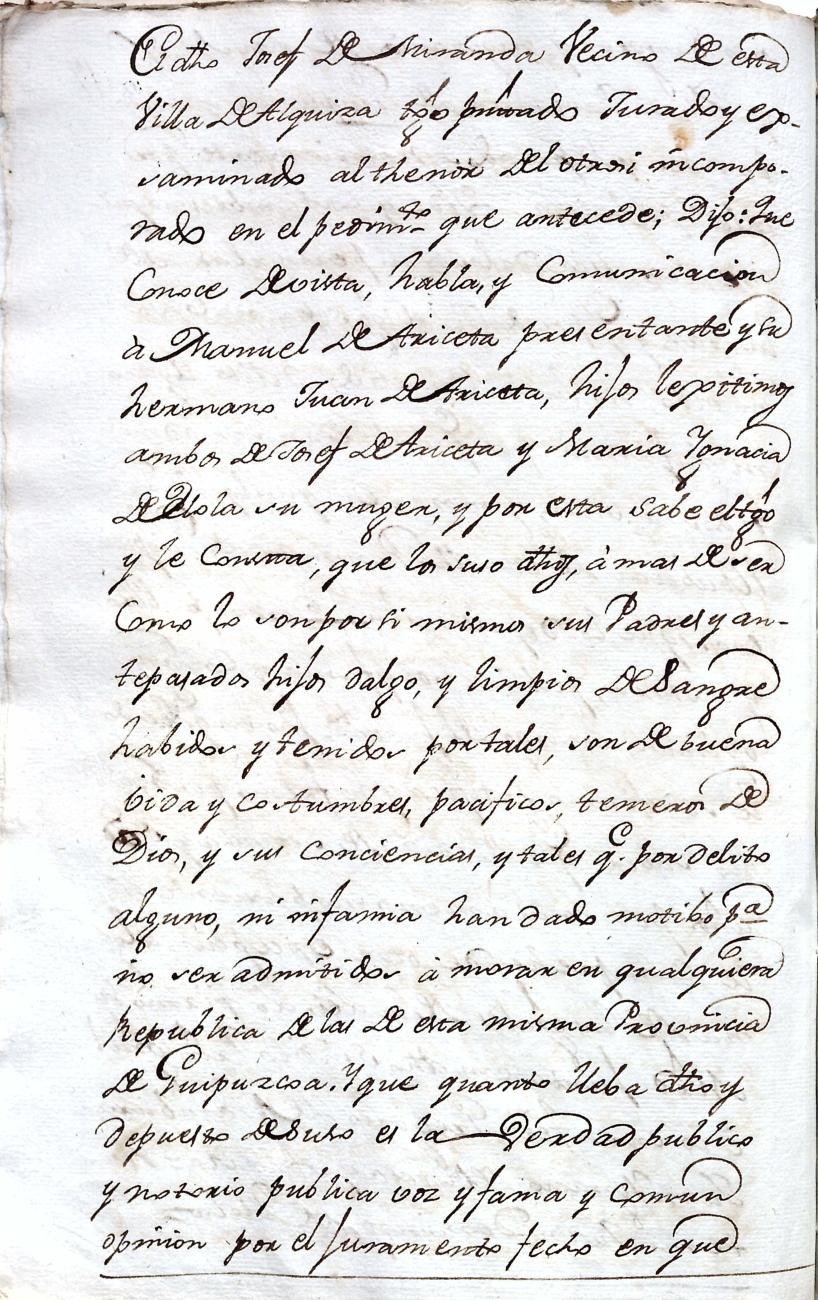 El dho Josef De Miranda Vecino De esta
Villa De Alquiza tgo pntado Jurado y ex-
saminado al thenor Del otrosi incorpo-
rado en el pedimto que antecede; Dijo: Que
Conoce De vista, habla, y Comunicacion
à Manuel De Ariceta presentante y su
hermano Juan De Ariceta, hijos lexitimos
ambos De Josef De Ariceta y Maria Ygnacia
De Elola su muger, y por esta sabe el tgo
y le Consta, que los suso dhos, à mas De ser
Como lo son por si mismos sus Padres y an-
tepasados hijos dalgo, y limpios De Sangre
habidos y tenidos por tales, son De buena
vida y costumbres, pacificos, temeros De
Dios, y sus Conciencias, y tales q. por delito
alguno, ni infamia han dado motibo pa
no ser admitidos à morar en qualquiera
Republica De las De esta misma Provincia
De Guipuzcoa. Y que quanto lleba dho y
depuesto De suso es la Verdad publico
y notorio publica voz y fama y comun
opinion por el Juramento fecho en que